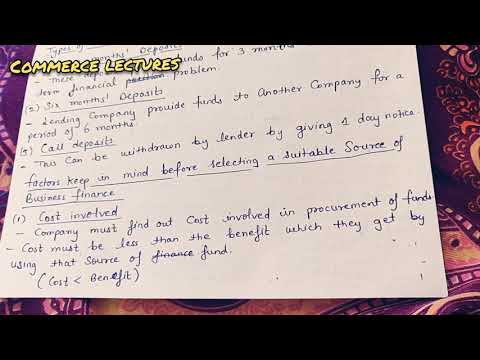 Types of
months' Deposits
COMMERCE LECTURES
- These deposit funds for 3 months
term financial problem.
(2) Six months' Deposits
- Lending Company provide funds to Another Company for a
period of 6 months.
(3) Call deposits
- This can be withdrawn by lender by giving 1 day notice.
factors keep in mind before selecting a suitable Source of
Business finance
(1) Cost involved
- Company must find out Cost involved in procurement of funds
- Cost must be less than the benefit which they get by
using that source of finance fund.
(Cost < Benefit)